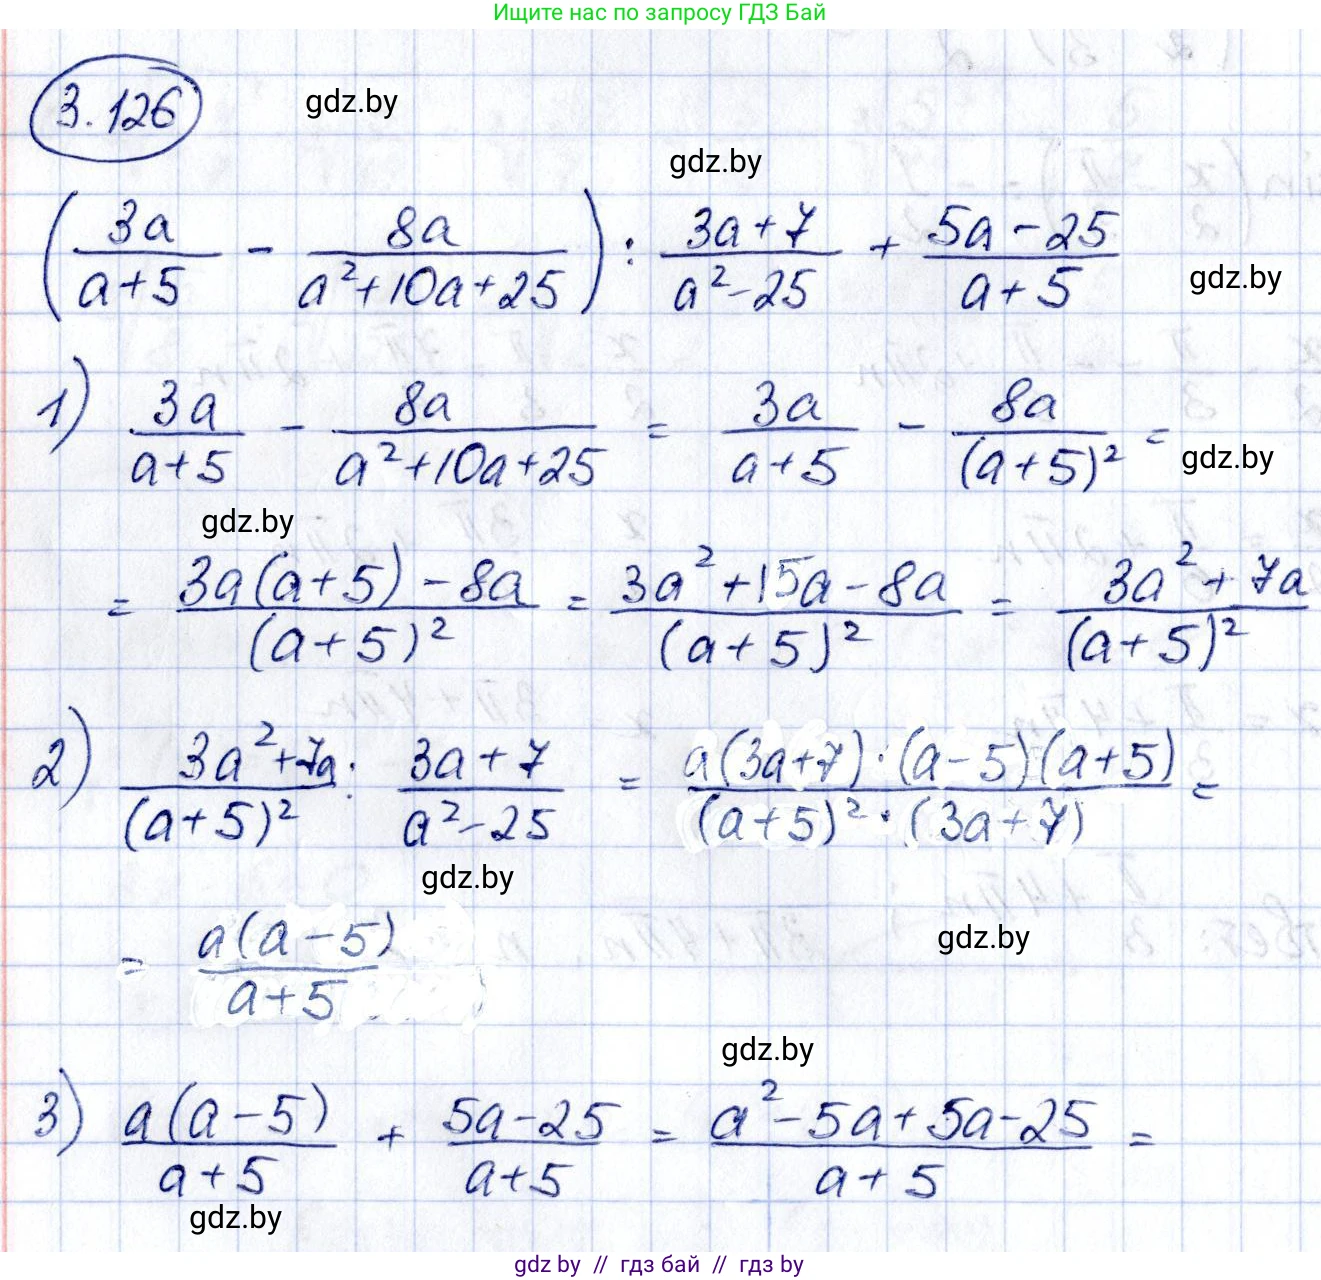 Ищите нас по запросу ГДЗ Бай
3.126 gdz.by
gdz.by
(3a/(a+5) - 8a/(a²+10a+25)) : (3a+7)/(a²-25) + (5a-25)/(a+5)
gdz.by
1) 3a/(a+5) - 8a/(a²+10a+25) = 3a/(a+5) - 8a/(a+5)² =
gdz.by
gdz.by
= (3a(a+5)-8a)/(a+5)² = (3a²+15a-8a)/(a+5)² = (3a²+7a)/(a+5)²
2) (3a²+7a)/(a+5)² : (3a+7)/(a²-25) = (a(3a+7)·(a-5)(a+5))/((a+5)²·(3a+7)) =
gdz.by
= a(a-5)/(a+5)
gdz.by
gdz.by
3) a(a-5)/(a+5) + (5a-25)/(a+5) = (a²-5a+5a-25)/(a+5) =
gdz.by
gdz by // гдз бай // гдз by